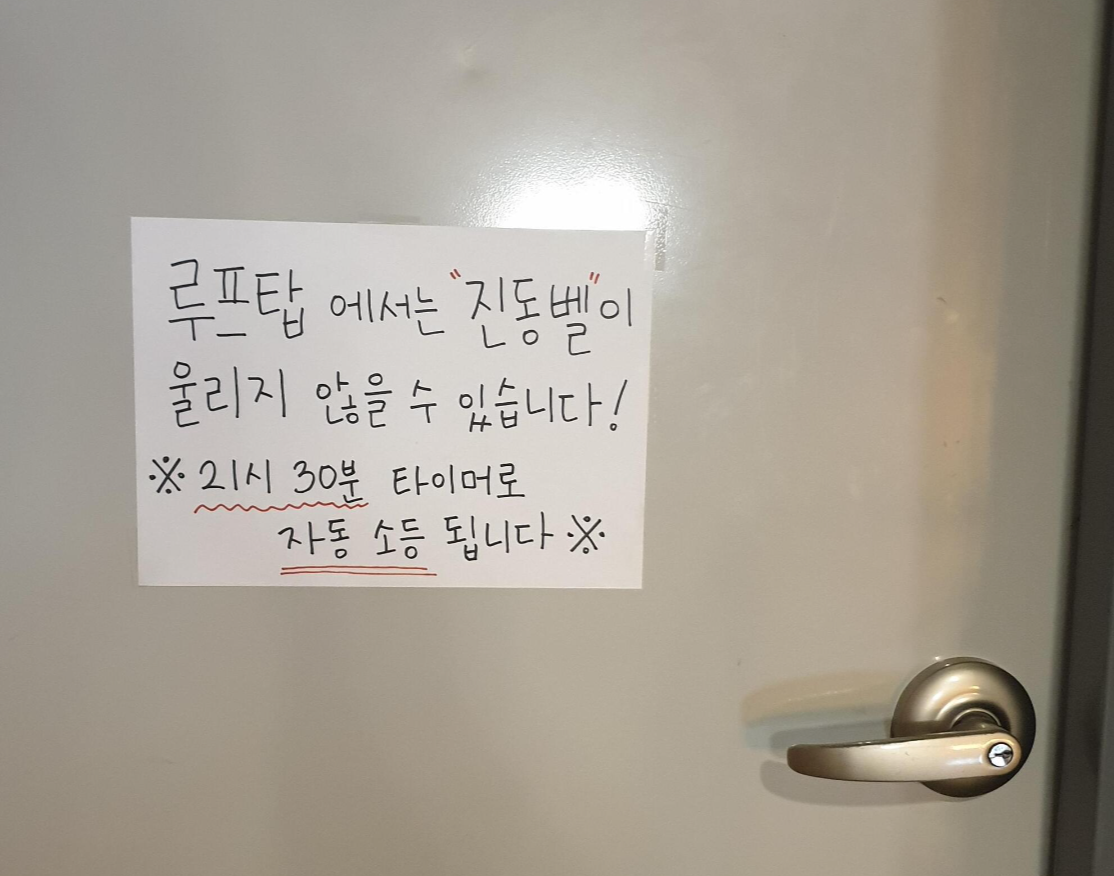 루프탑 에서는 "진동벨"이
울리지 않을 수 있습니다!
※ 21시 30분 타이머로
자동 소등 됩니다 ※